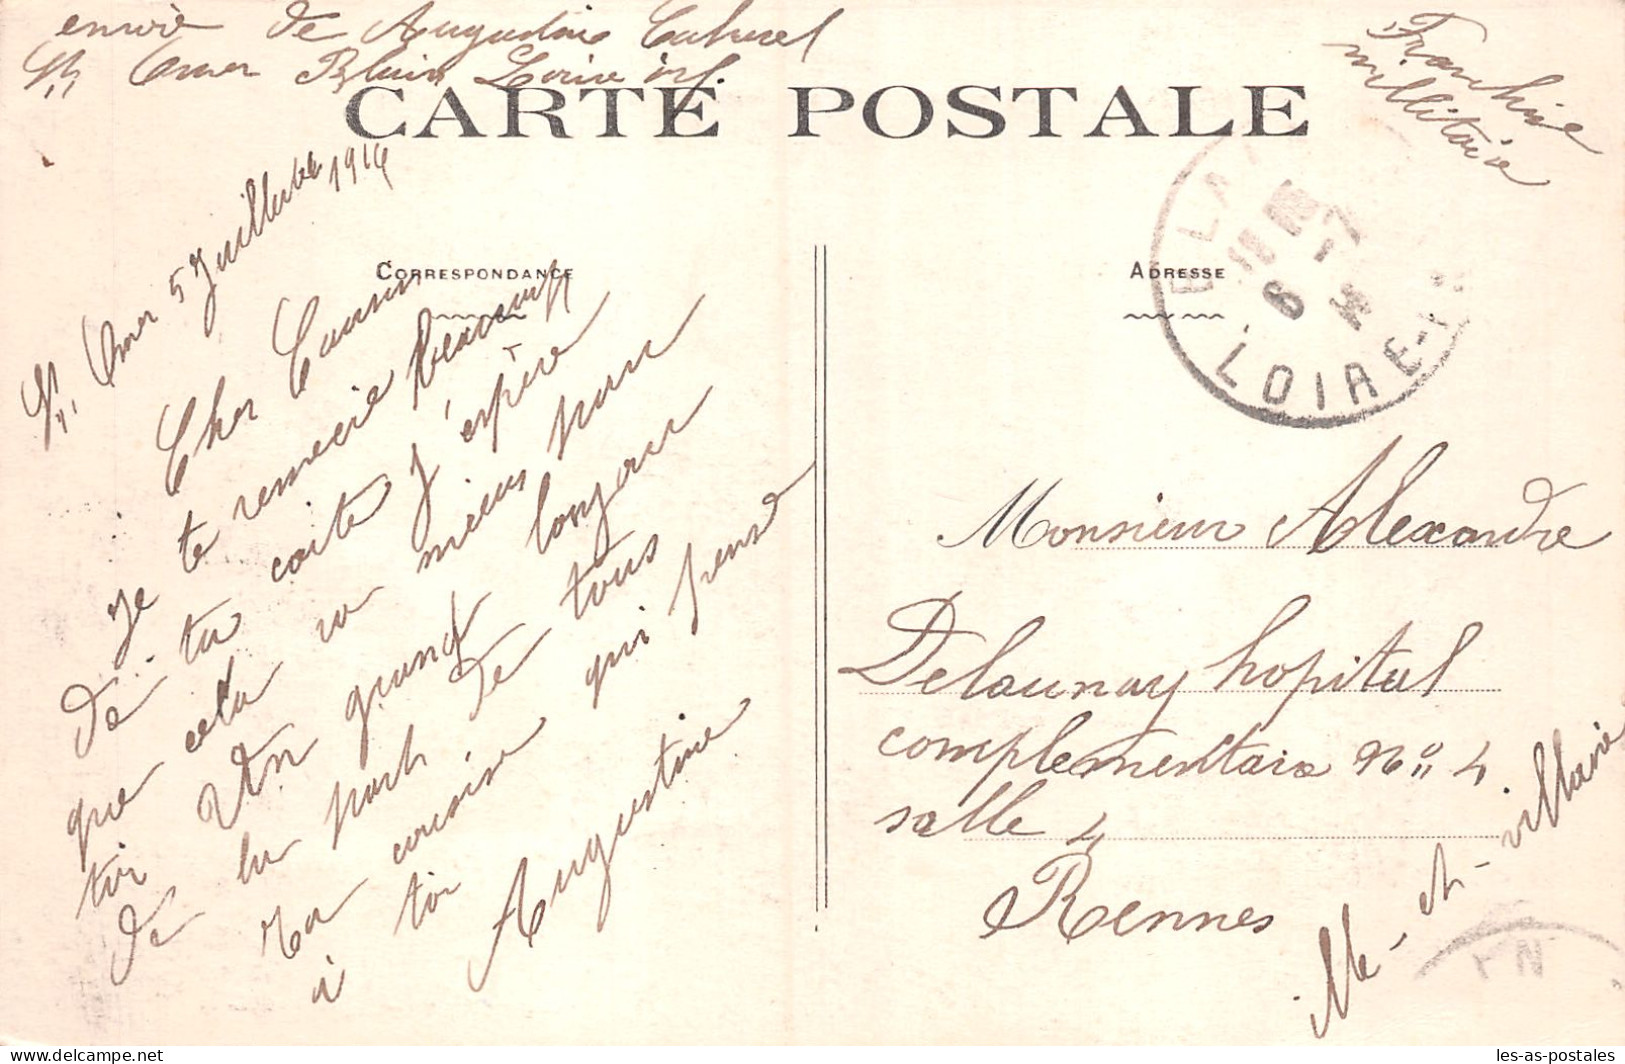 envoi de Augustine
St Omer Blain Loire inf.
Franchise
militaire
CARTE POSTALE
St Omer 5 Juillet 1916
CORRESPONDANCE
ADRESSE
BLAIN
6 -7
LOIRE-I
Cher Cousin
Je te remercie beaucoup
de ta carte j'espère
que cela va mieux pour
toi Un grand bonjour
de la part de tous
Ta cousine qui pense
à toi
Augustine
Monsieur Alexandre
Delaunay hopital
complementaire No 4
salle 4
Rennes
Ille-et-villaine
delcampe.net
les-as-postales